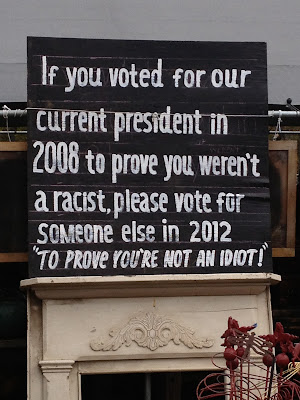 If you voted for our
current president in
2008 to prove you weren't
a racist, please vote for
someone else in 2012
"TO PROVE YOU'RE NOT AN IDIOT!"